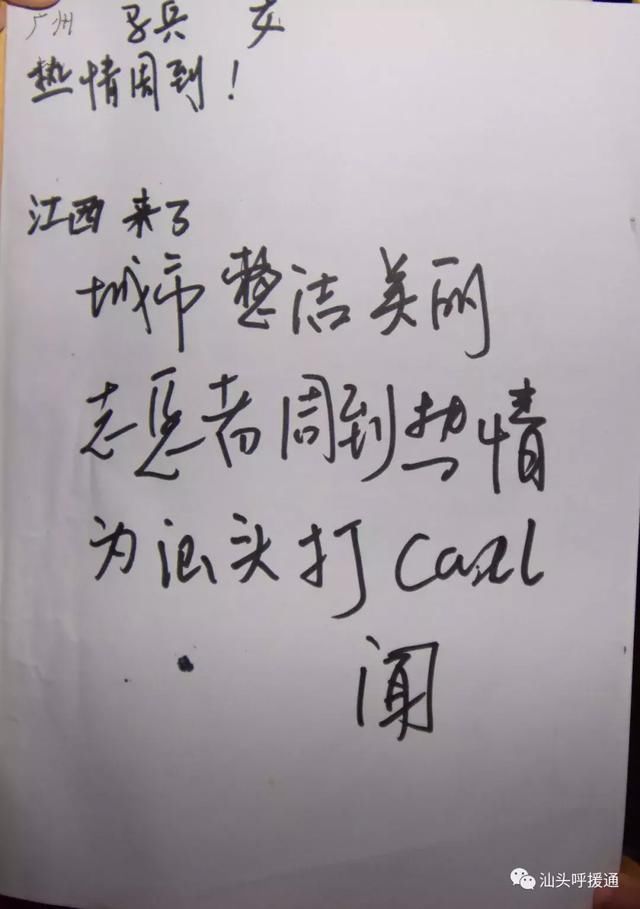 广州 女
热情周到！
江西 来了
城市整洁美丽
志愿者周到热情
为汕头打call
闻
汕头呼援通